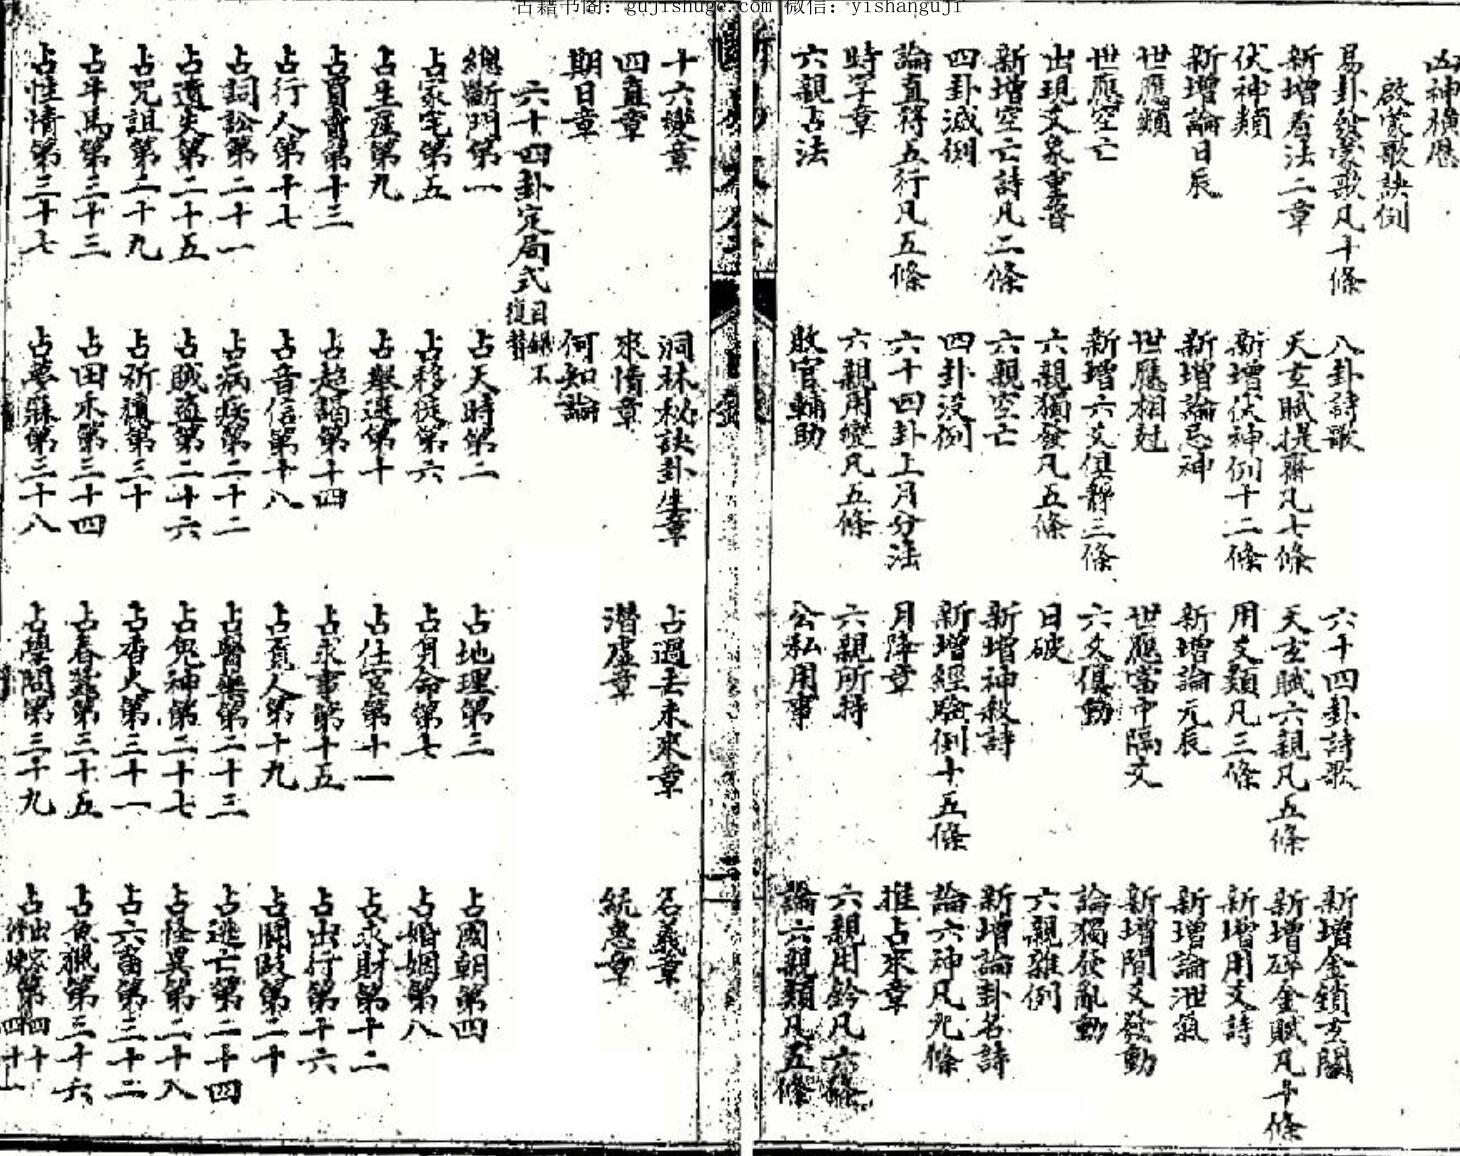 古籍书阁：gujishuge.com 微信：yishanguji
凶神横應
啟蒙歌訣例
易卦發蒙歌凡十條 八卦詩歌 六十四卦詩歌 新增金鎖玄關
新增看法二章 天玄賦提齊凡七條 天玄賦六親凡五條 新增碎金賦凡十條
伏神類 新增伏神例十二條 用爻類凡三條 新增用爻詩
新增論日辰 新增論忌神 新增論元辰 新增論泄氣
世應類 世應相尅 世應當中隔爻 新增間爻發動
世應空亡 新增六爻俱靜三條 六爻俱動 論獨發亂動
出現爻象重疊 六親獨發凡五條 日破 六親雜例
新增空亡詩凡二條 六親空亡 新增神殺詩 新增論卦名詩
四卦滅例 四卦没例 新增經驗例十五條 論六神凡九條
論直符五行凡五條 六十四卦上月分法 月降章 推占來章
時字章 六親用變凡五條 六親所持 六親用鈐凡六條
六親占法 敗官輔助 公私用事 論六親類凡五條
十六變章 洞林秘訣卦生章 占過去未來章 名義章
四直章 來情章 潛虛章 統惠章
期日章 何知論
六十四卦定局式 目錄不復贅
總斷門第一 占天時第二 占地理第三 占國朝第四
占家宅第五 占移徙第六 占身命第七 占婚姻第八
占生產第九 占舉選第十 占仕宦第十一 占求財第十二
占買賣第十三 占趋謁第十四 占求事第十五 占出行第十六
占行人第十七 占音信第十八 占尋人第十九 占鬪毆第二十
占詞訟第二十一 占病疾第二十二 占醫藥第二十三 占逃亡第二十四
占遺失第二十五 占賊盗第二十六 占鬼神第二十七 占怪異第二十八
占咒詛第二十九 占祈禳第三十 占香火第三十一 占六畜第三十二
占牛馬第三十三 占田禾第三十四 占春蚕第三十五 占魚獵第三十六
占性情第三十七 占夢寐第三十八 占學問第三十九 占出家第四十 修煉四十一